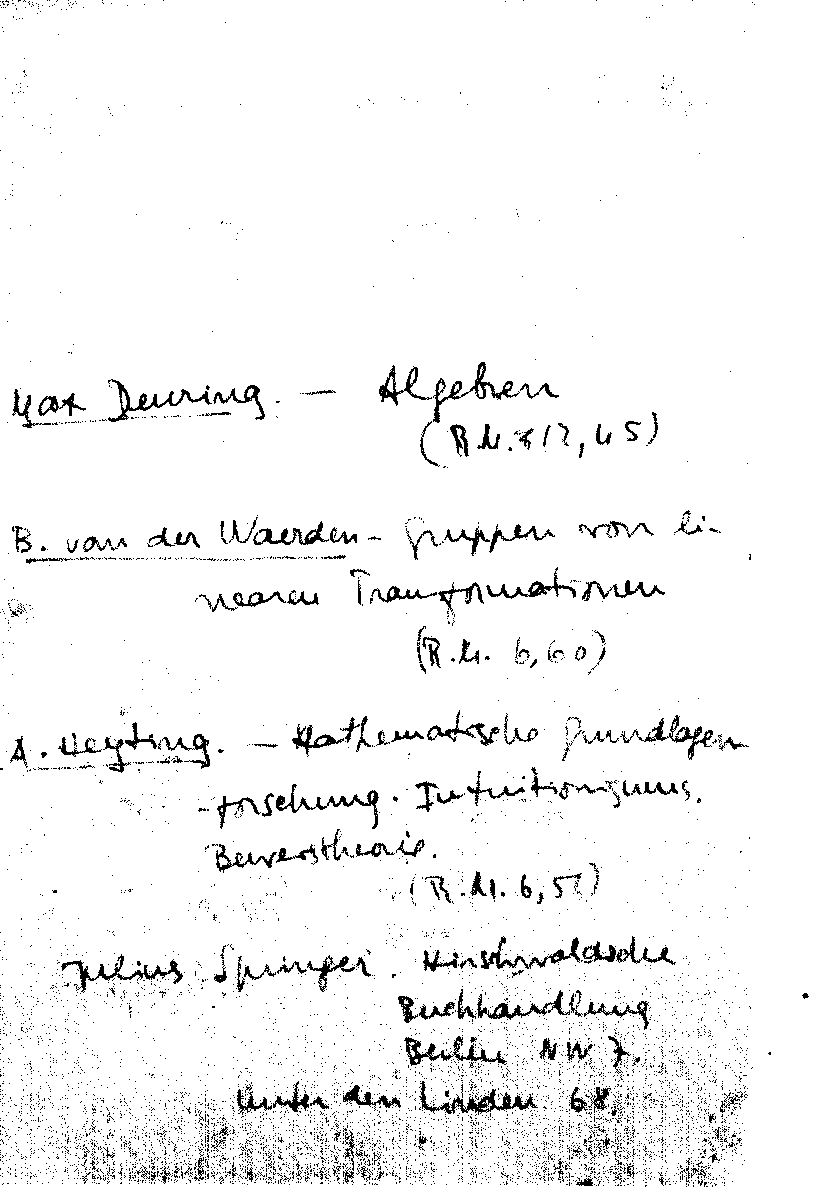 Max Deuring. — Algebren
(R.M. 12,45)
B. van der Waerden - Gruppen von li-
nearen Transformationen
(R.M. 6,60)
A. Heyting. — Mathematische Grundlagen
-forschung. Intuitionismus.
Beweistheorie.
(R.M. 6,5
Julius Springer. Hirschwaldsche
Buchhandlung
Berlin NW 7.
Unter den Linden 68.